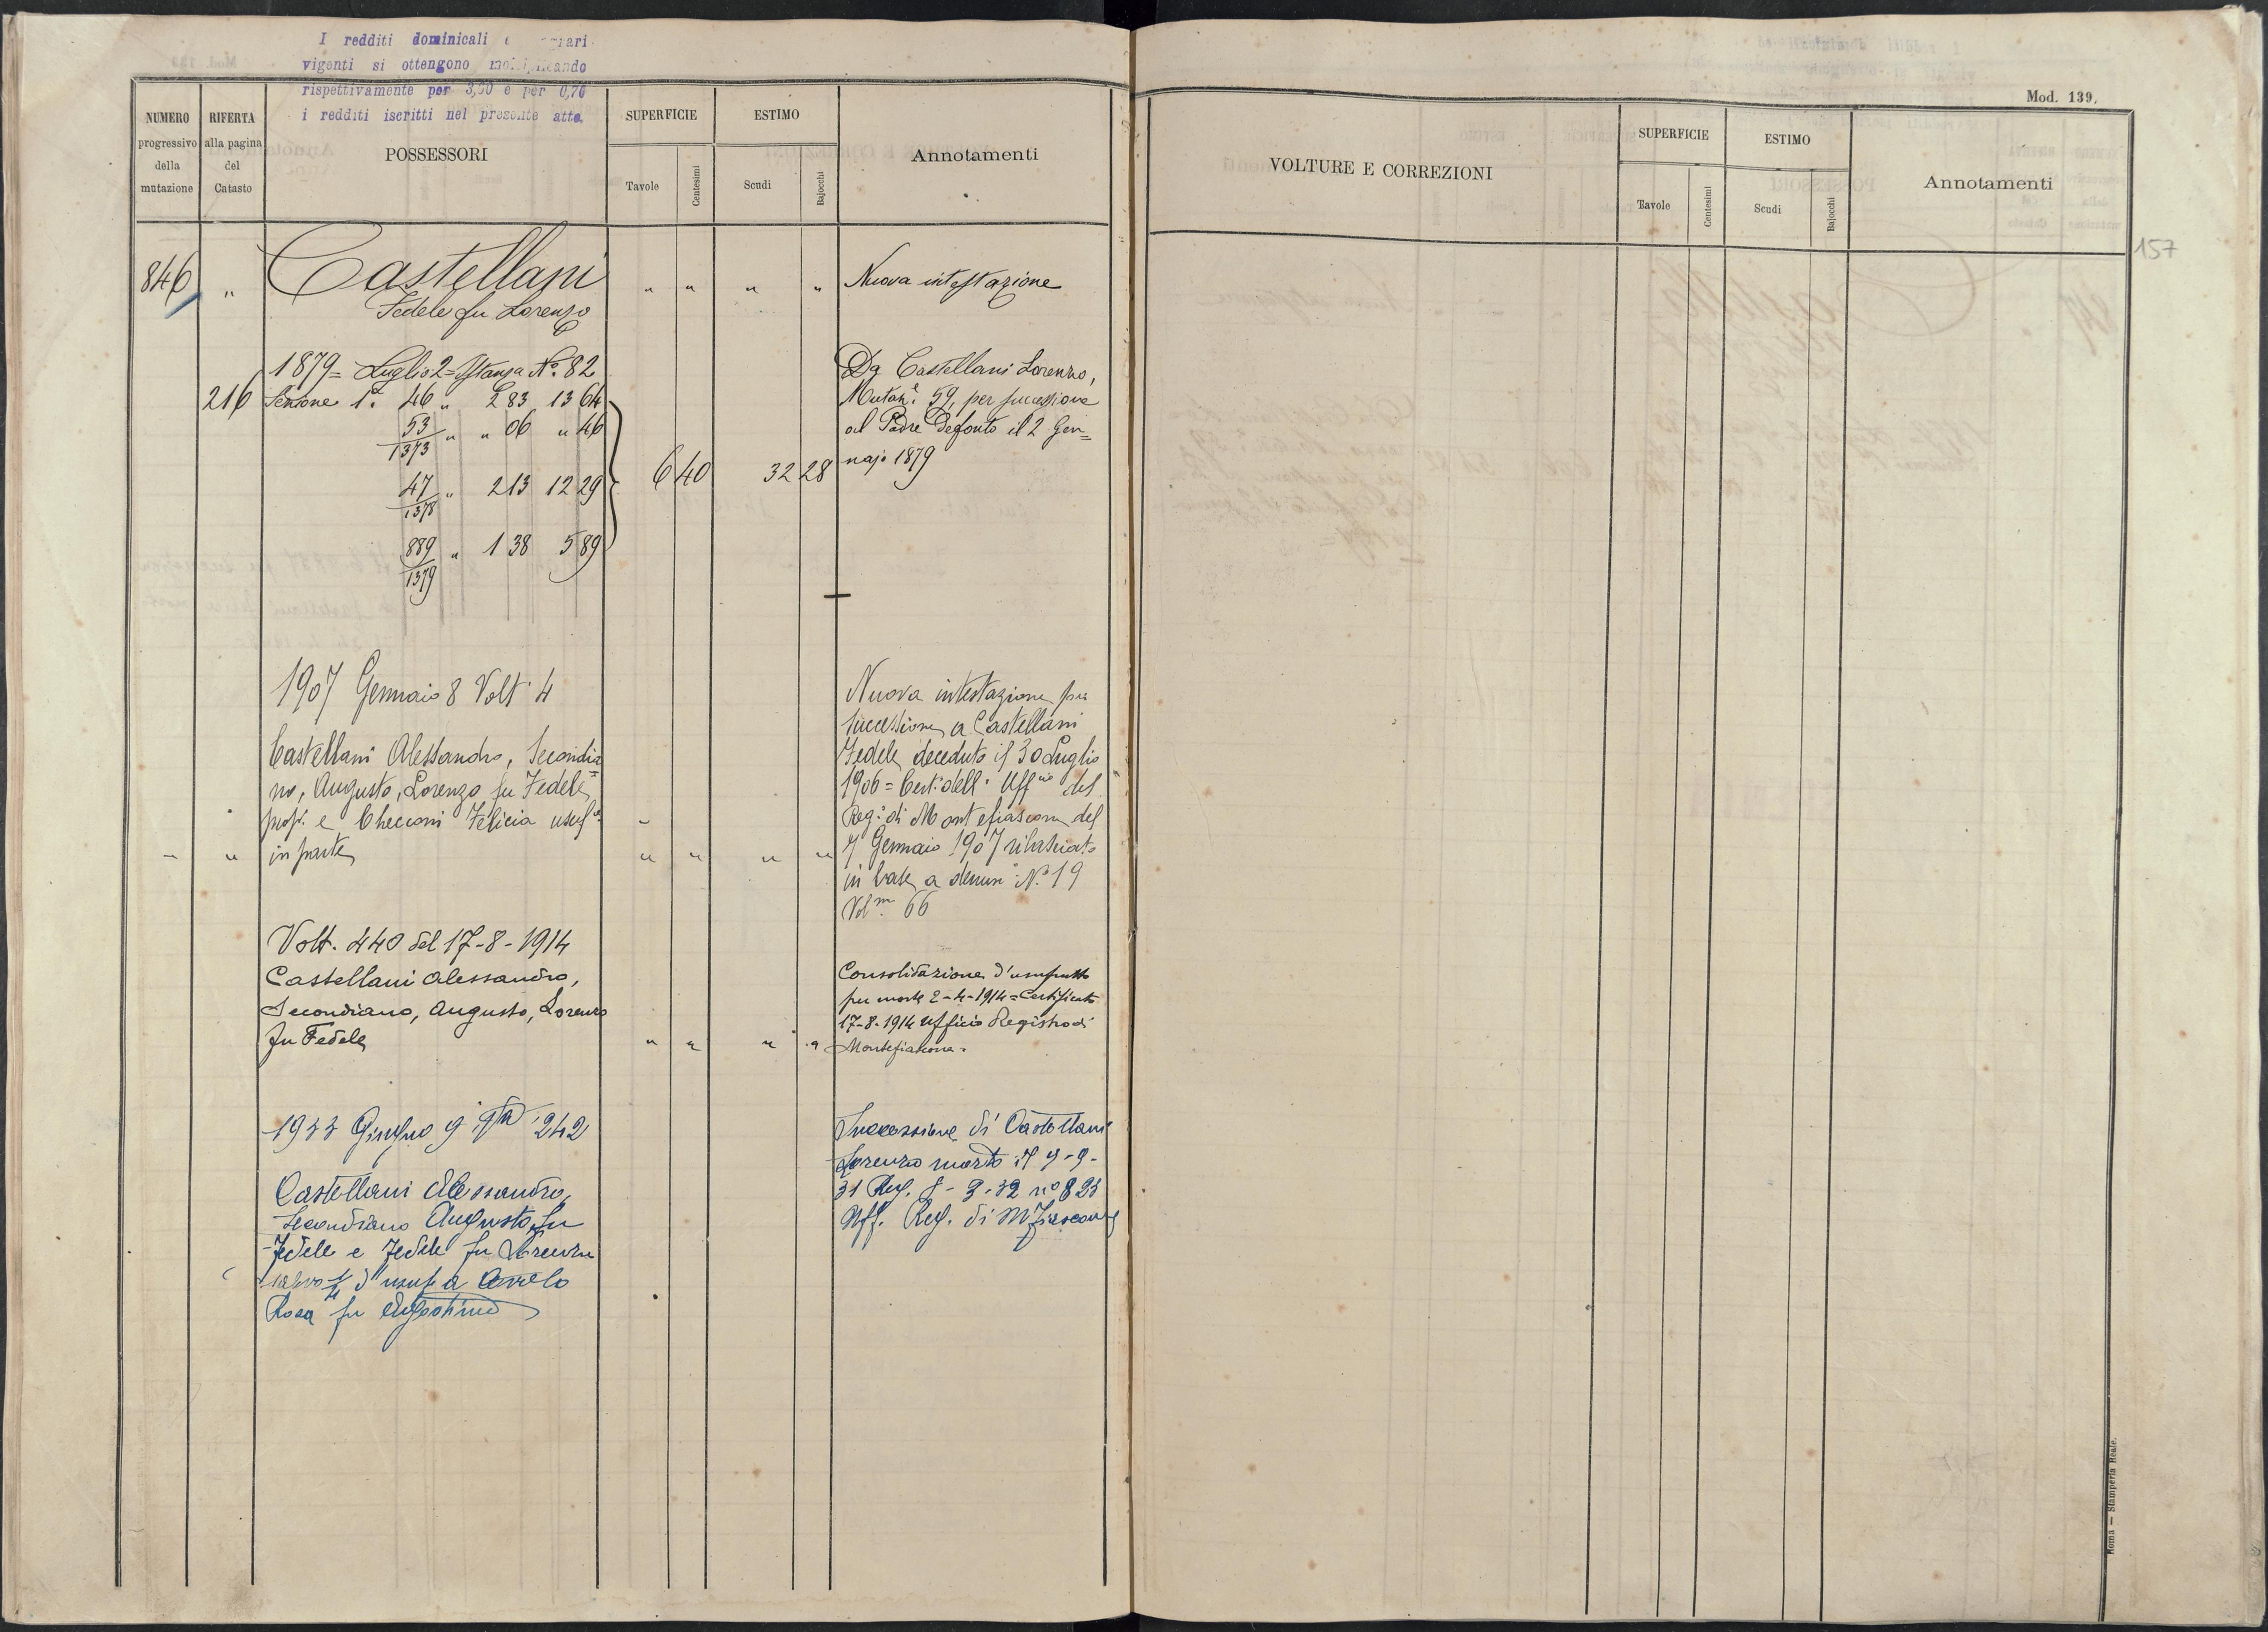 I redditi dominicali e
vigenti si ottengono moltiplicando
rispettivamente per 3,50 e per 0,70
i redditi iscritti nel presente atto.
NUMERO
progressivo
della
mutazione
RIFERTA
alla pagina
del
Catasto
POSSESSORI
SUPERFICIE
Tavole
Centesimi
ESTIMO
Scudi
Bajocchi
Annotamenti
846 " Castellani " " " " Nuova intestazione
Fedele fu Lorenzo
1879 = Luglio 2 = Istanza N.º 82
216 Sezione 1ª 46 " 2 83 13 64
53/1373 " " 06 " 46
47/1378 " 2 13 12 29
889/1379 " 1 38 5 89
6 40 32 28
Da Castellani Lorenzo,
Mutaz.e 59, per successione
al Padre defonto il 2 Gen=
najo 1879
1907 Gennaio 8 Volt. 4
Castellani Alessandro, Secondia=
no, Augusto, Lorenzo fu Fedele
prop. e Checconi Felicia usuf.
in parte
" " " " " "
Nuova intestazione per
successione a Castellani
Fedele deceduto il 30 Luglio
1906 = Cert. dell' Uff.io del
Reg. di Montefiascone del
7 Gennaio 1907 rilasciato
in base a denun. N.º 19
Vol.m 66
Volt. 440 del 17-8-1914
Castellani Alessandro,
Secondiano, Augusto, Lorenzo
fu Fedele
" " " "
Consolidazione d'usufrutto
per morte 2-4-1914 = Certificato
17-8-1914 Ufficio Registro di
Montefiascone.
1933 Giugno 9 242
Castellani Alessandro,
Secondiano Augusto fu
Fedele e Fedele fu Lorenzo
salvo d'usuf a
Rosa fu Agostino
Successione di Castellani
Lorenzo morto il 9-9-
31 Reg. 8-3-32 nº 823
Uff. Reg. di M Fiascone
Mod. 139.
VOLTURE E CORREZIONI
SUPERFICIE
Tavole
Centesimi
ESTIMO
Scudi
Bajocchi
Annotamenti
157
Roma — Stamperia Reale.